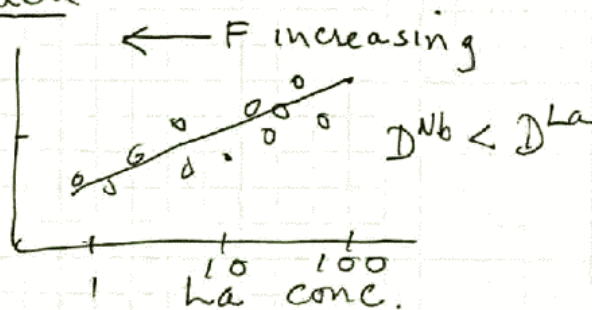 ← F increasing
D^Nb < D^La
1 10 100
La conc.